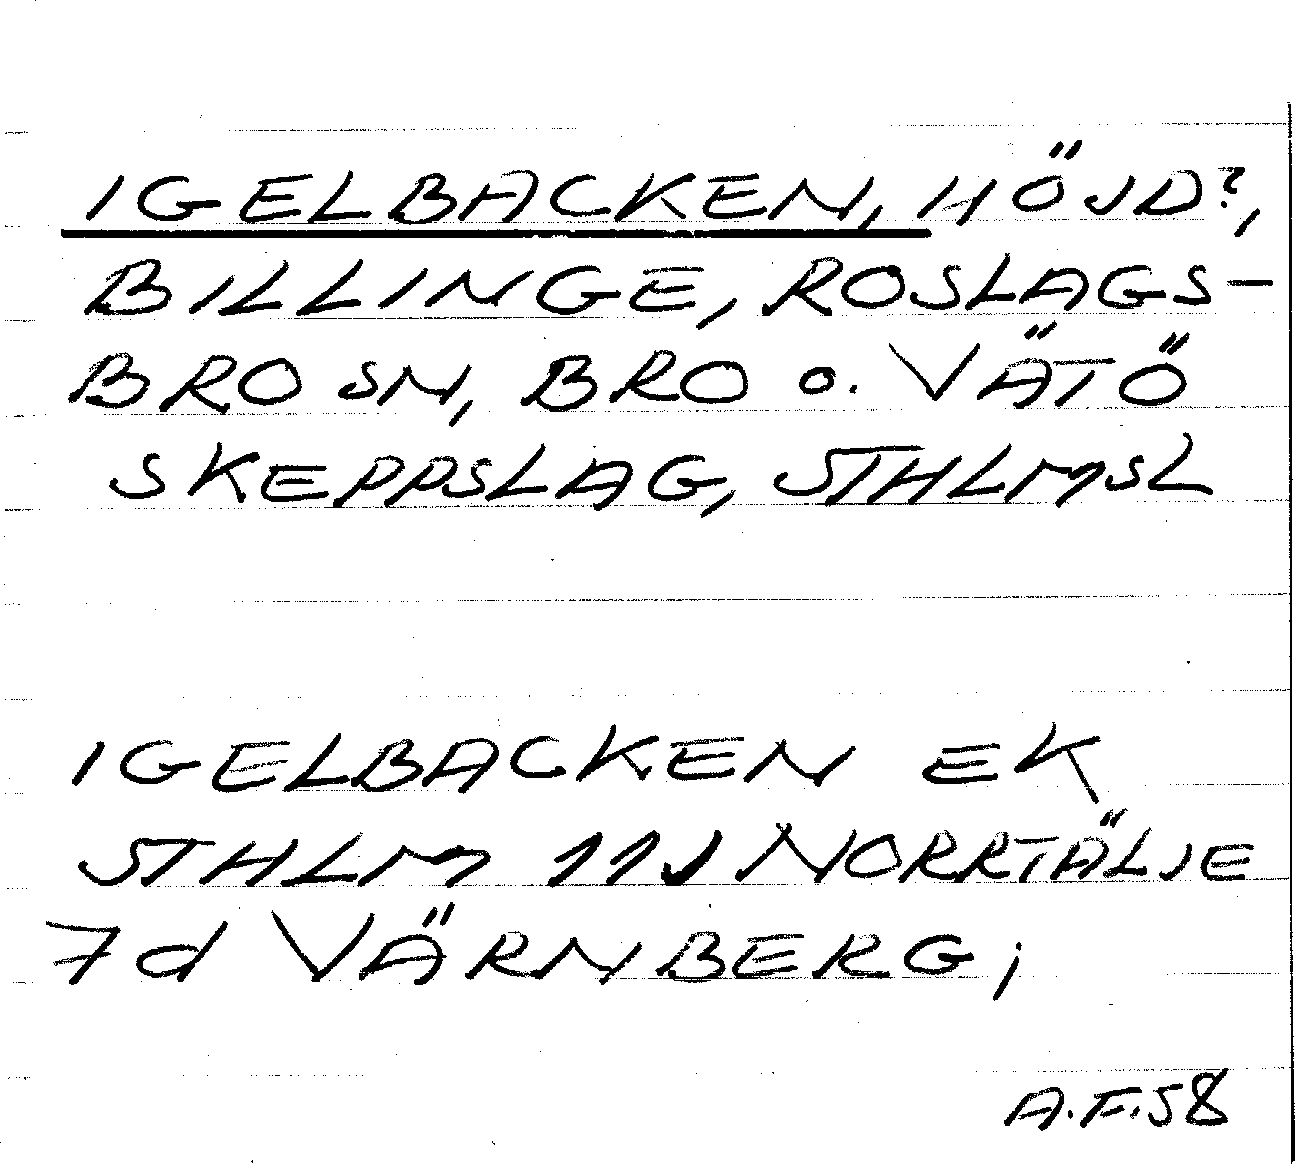 IGELBACKEN, HÖJD?,
BILLINGE, ROSLAGS-
BRO SN, BRO o. VÄTÖ
SKEPPSLAG, STHLMSL
IGELBACKEN EK
STHLM 11J NORRTÄLJE
7d VÄRNBERG;
A.F.58